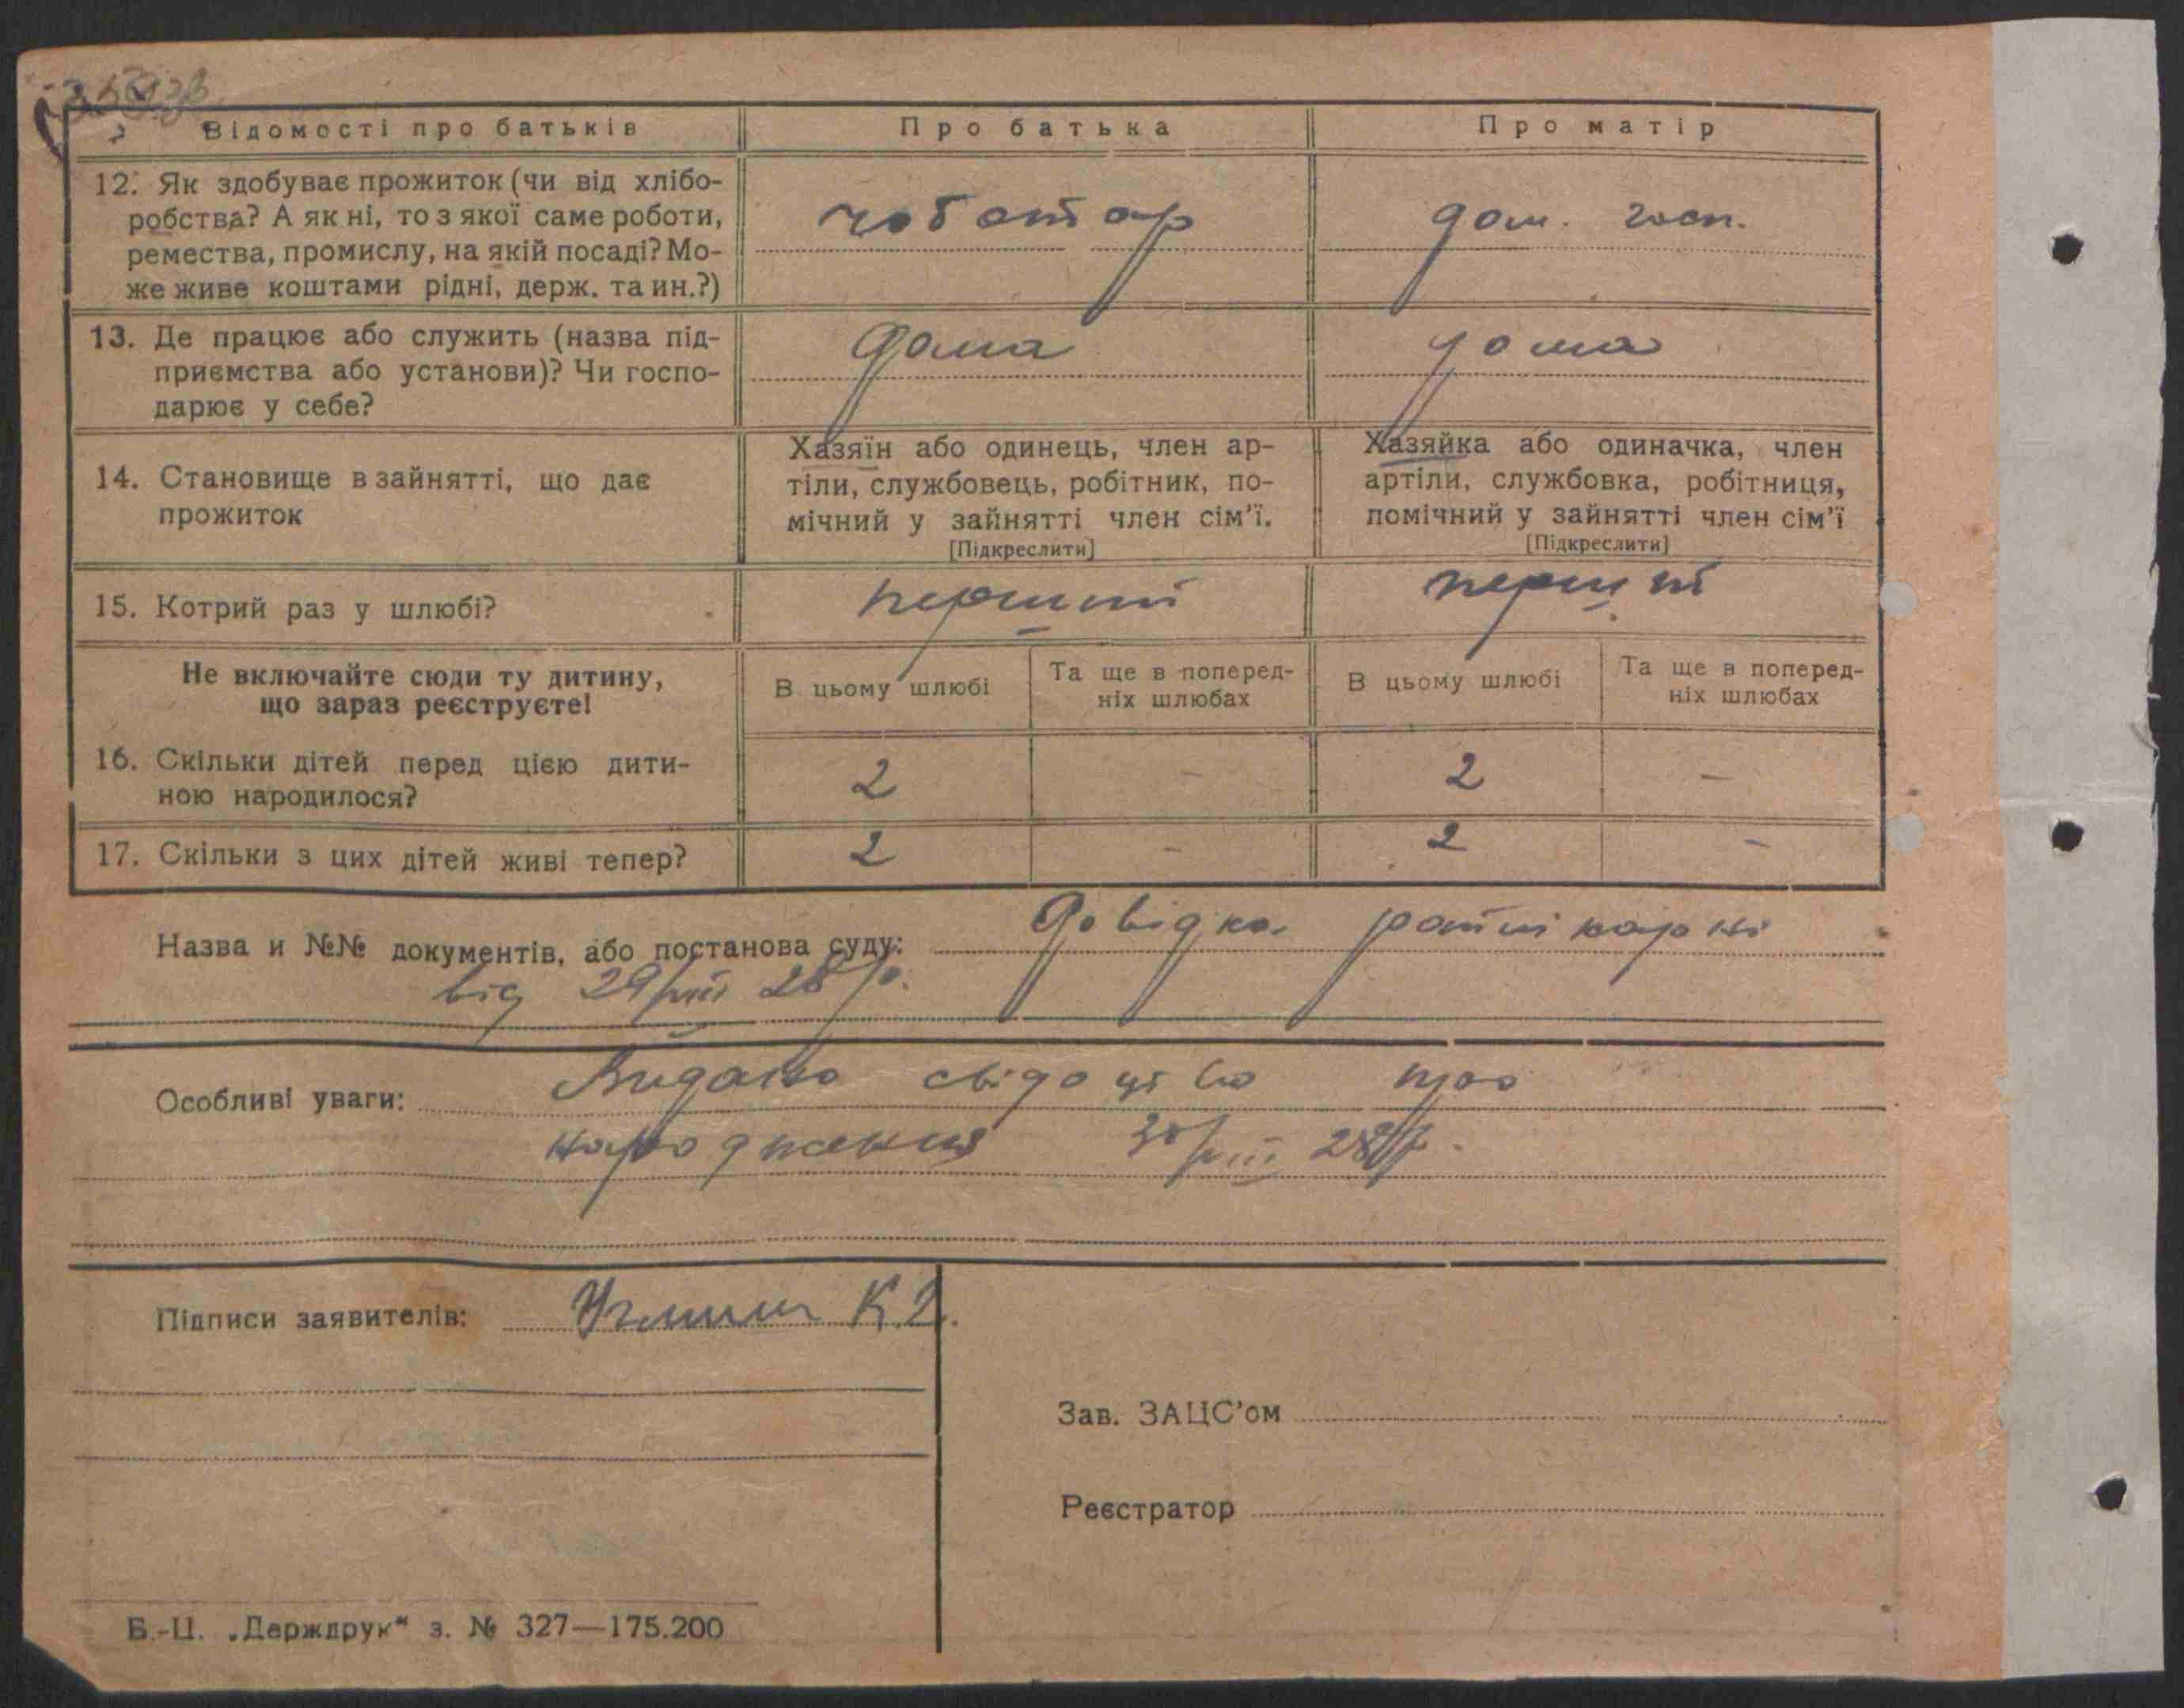 Відомості про батьків
Про батька
Про матір
12. Як здобуває прожиток (чи від хлібо-
робства? А як ні, то з якої саме роботи,
ремества, промислу, на якій посаді? Мо-
же живе коштами рідні, держ. та ин.?)
чоботар
дом. госп.
13. Де працює або служить (назва під-
приємства або установи)? Чи госпо-
дарює у себе?
дома
дома
14. Становище в зайнятті, що дає
прожиток
Хазяїн або одинець, член ар-
тіли, службовець, робітник, по-
мічний у зайнятті член сім'ї.
[Підкреслити]
Хазяйка або одиначка, член
артіли, службовка, робітниця,
помічний у зайнятті член сім'ї
[Підкреслити]
15. Котрий раз у шлюбі?
перший
перший
Не включайте сюди ту дитину,
що зараз реєструєте!
В цьому шлюбі
Та ще в поперед-
ніх шлюбах
В цьому шлюбі
Та ще в поперед-
ніх шлюбах
16. Скільки дітей перед цією дити-
ною народилося?
2 - 2 -
17. Скільки з цих дітей живі тепер?
2 - 2 -
Назва и №№ документів, або постанова суду: Довідка
від 29/VIII 28 р.
Особливі уваги: Видано свідоцтво про
народження 30/VIII 28 р.
Підписи заявителів: К.
Зав. ЗАЦС'ом
Реєстратор
Б.-Ц. „Держдрук“ з. № 327—175.200